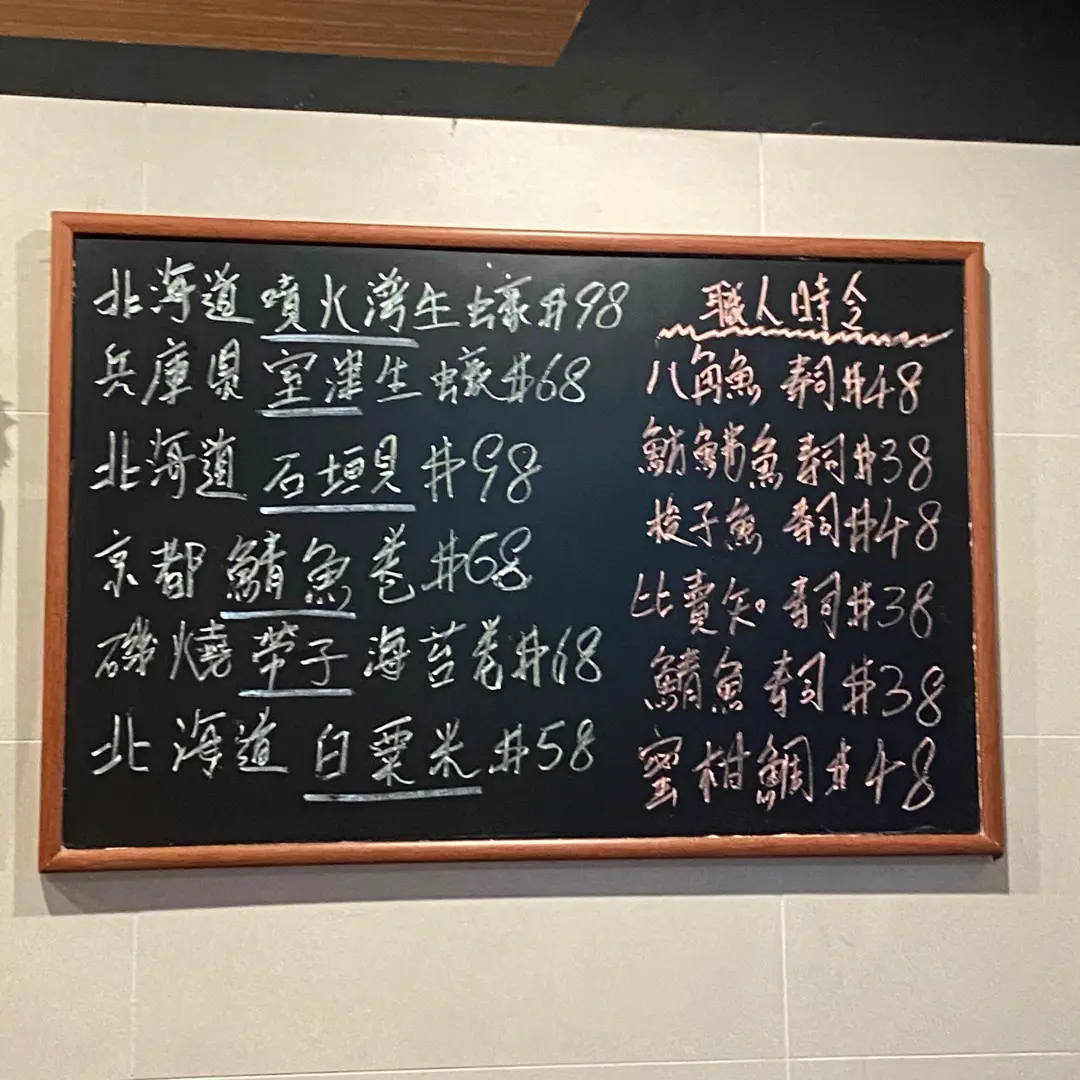 北海道噴火灣生蠔#98
兵庫県室津生蠔#68
北海道石垣貝#98
京都鯖魚卷#68
磯燒帶子海苔卷#68
北海道白粟米#58
職人時令
八角魚壽司#48
魴鮄魚壽司#38
梭子魚壽司#48
比賣知壽司#38
鯖魚壽司#38
蜜柑鯛#48